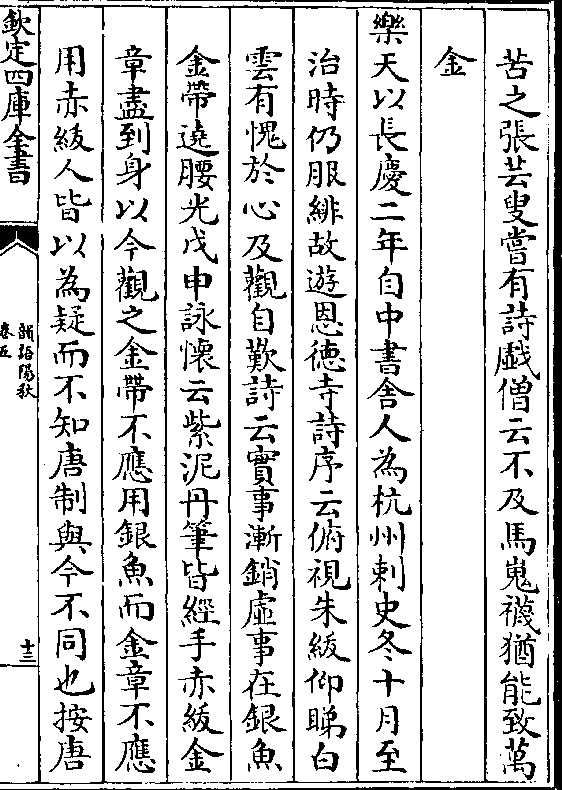 苦之張芸叟嘗有詩戲僧云不及馬嵬襪猶能致萬
金
樂天以長慶二年自中書舍人為杭州刺史冬十月至
治時仍服緋故遊恩德寺詩序云俯視朱紱仰睇白
雲有愧於心及觀自歎詩云實事漸銷虛事在銀魚
金帶遶腰光戊申詠懷云紫泥丹筆皆經手赤紱金
章盡到身以今觀之金帶不應用銀魚而金章不應
用赤紱人皆以為疑而不知唐制與今不同也按唐
欽定四庫全書
韻語陽秋
卷五
十三